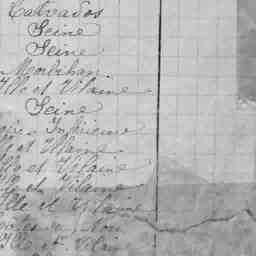 Calvados
Seine
Seine
Morbihan
Ille et Vilaine
Seine
Inférieure
et Vilaine
Ille et Vilaine
et Vilaine
Ille et Vilaine
Ille et Vilai